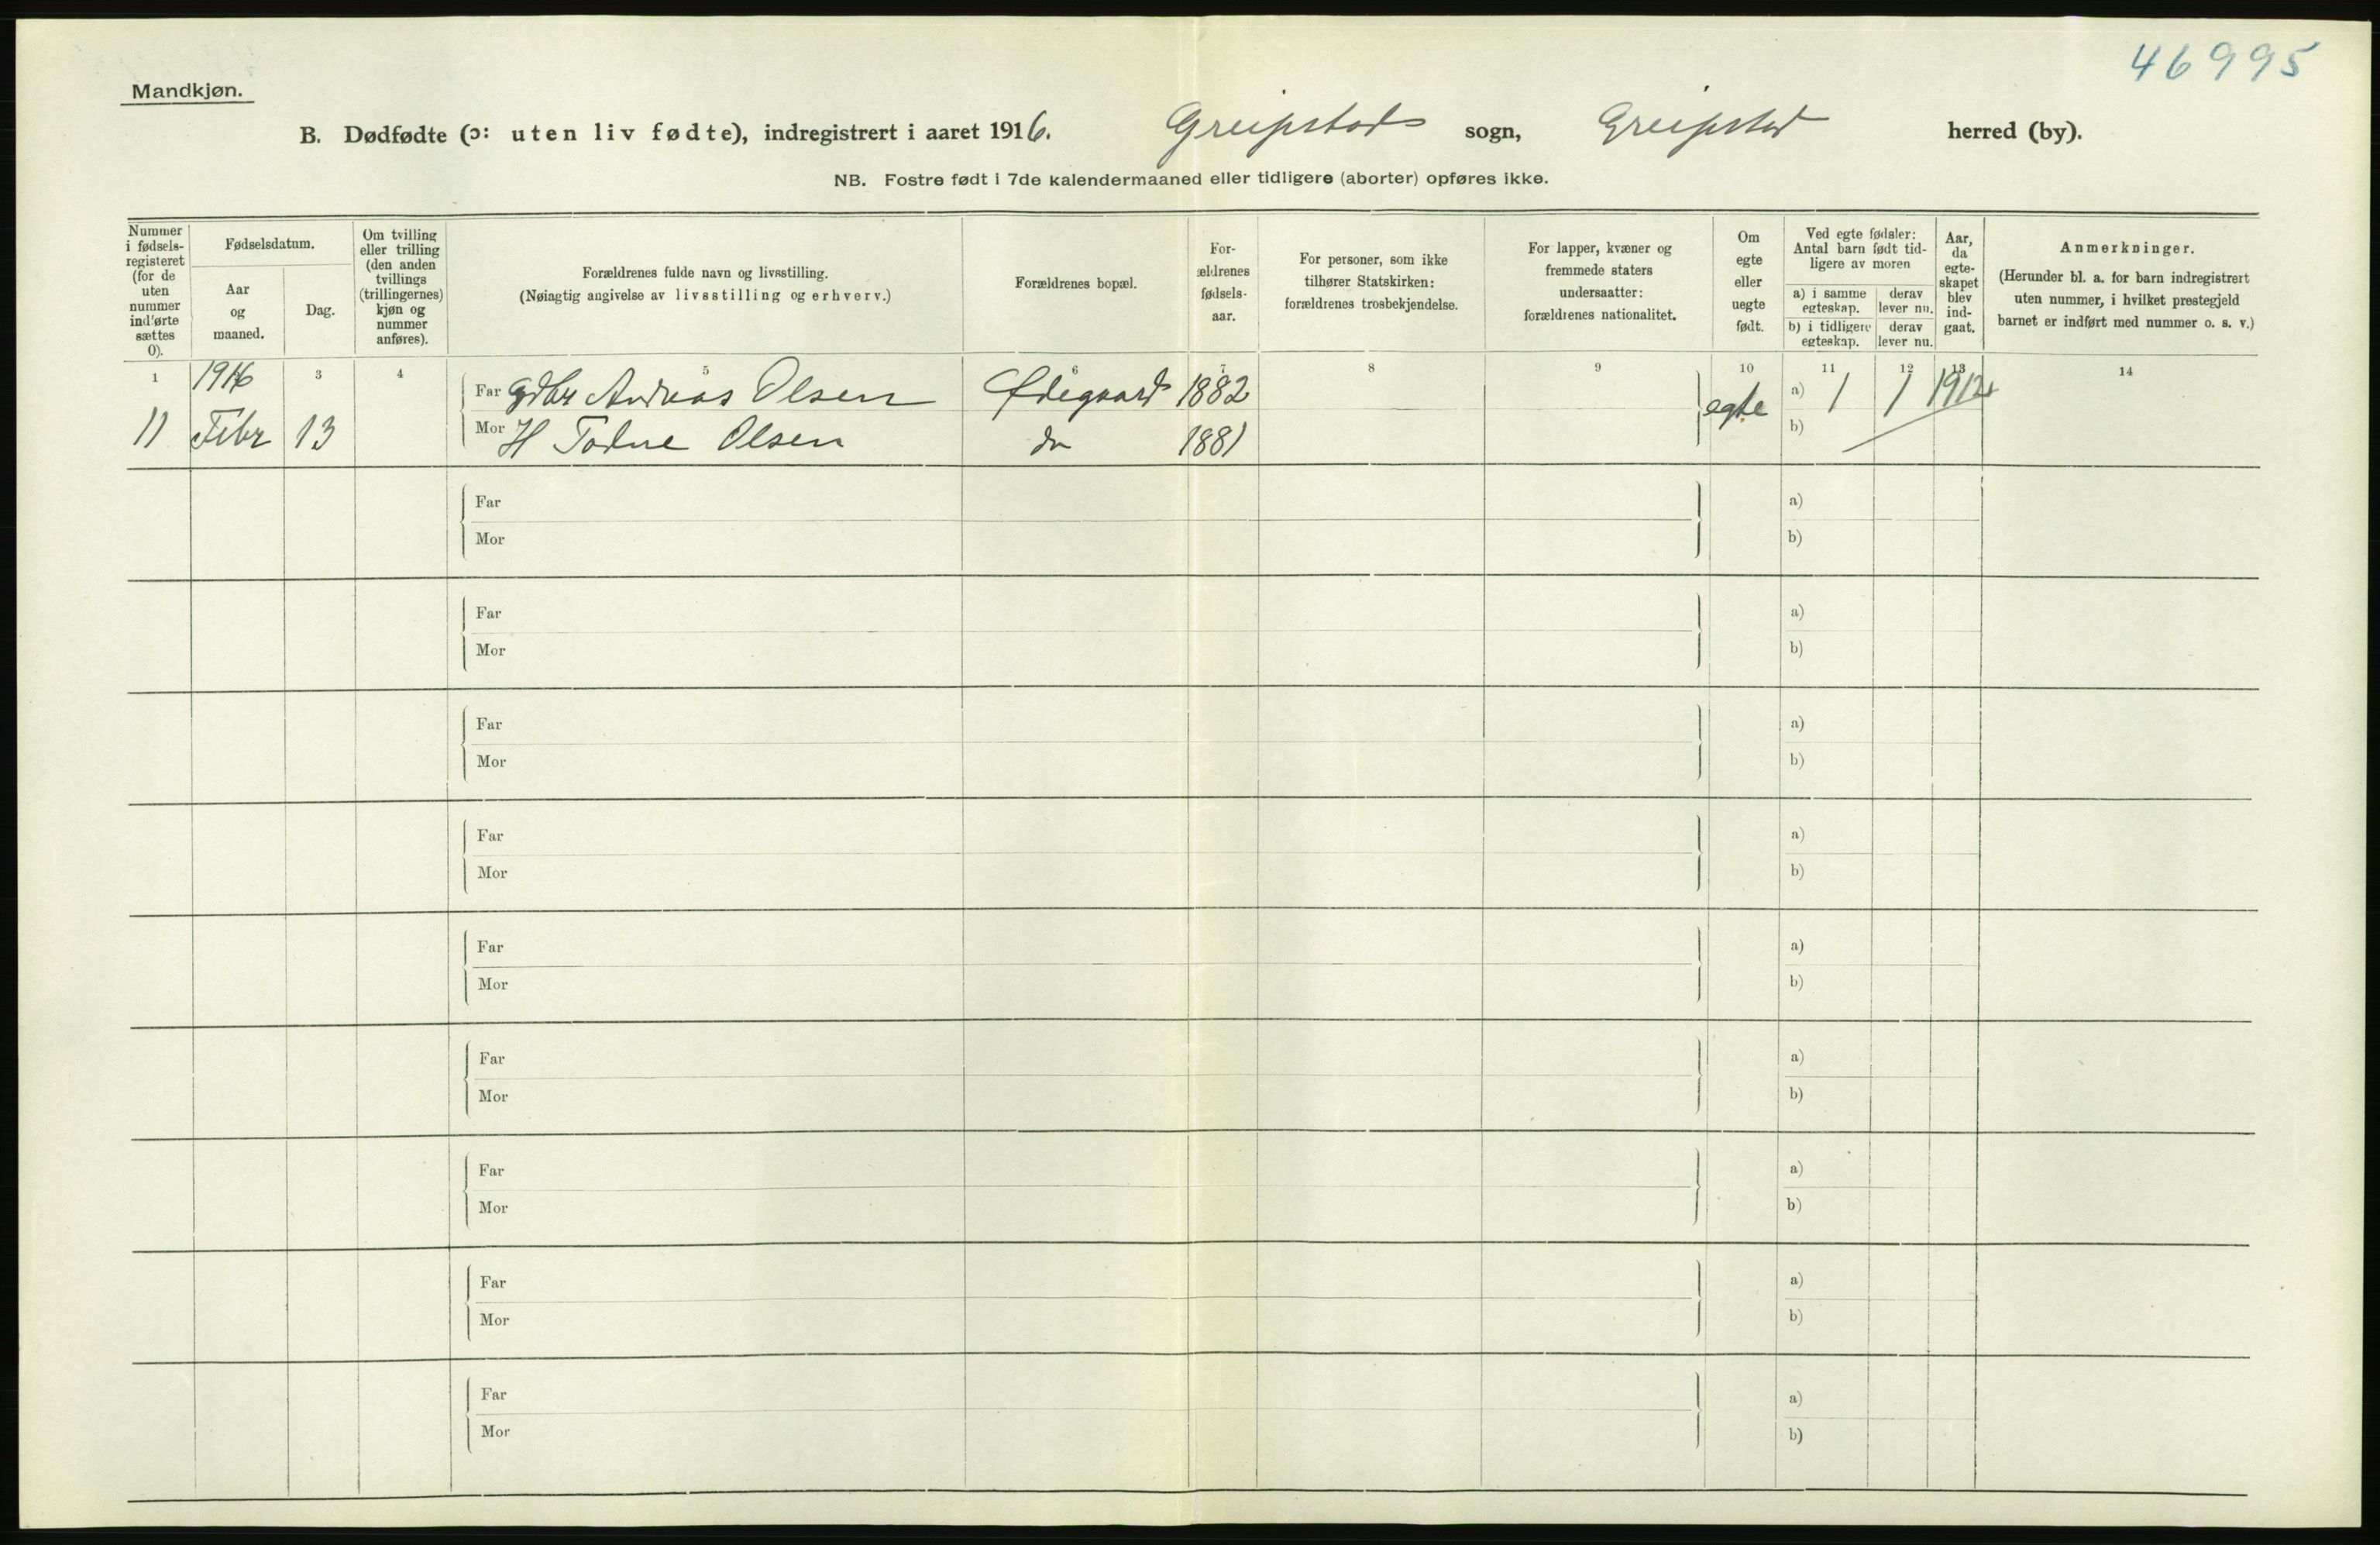 46995
Mandkjøn.
B. Dødfødte (ɔ: uten liv fødte), indregistrert i aaret 1916. Greipstad sogn, Greipstad herred (by).
NB. Fostre født i 7de kalendermaaned eller tidligere (aborter) opføres ikke.
Nummer i fødsels-registeret (for de uten nummer indførte sættes 0).
Fødselsdatum.
Aar og maaned.
Dag.
Om tvilling eller trilling (den anden tvillings (trillingernes) kjøn og nummer anføres).
Forældrenes fulde navn og livsstilling.
(Nøiagtig angivelse av livsstilling og erhverv.)
Forældrenes bopæl.
For-ældrenes fødsels-aar.
For personer, som ikke tilhører Statskirken: forældrenes trosbekjendelse.
For lapper, kvæner og fremmede staters undersaatter: forældrenes nationalitet.
Om egte eller uegte født.
Ved egte fødsler: Antal barn født tid-ligere av moren
a) i samme egteskap.
derav lever nu.
b) i tidligere egteskap.
derav lever nu.
Aar, da egte-skapet blev ind-gaat.
Anmerkninger.
(Herunder bl. a. for barn indregistrert uten nummer, i hvilket prestegjeld barnet er indført med nummer o. s. v.)
1 3 4 5 6 7 8 9 10 11 12 13 14
1916 Far Gdbr Andreas Olsen Ødegaard 1882 egte a) 1 1 1912
11 Febr 13 Mor H Todne Olsen do 1881 b)
Far a)
Mor b)
Far a)
Mor b)
Far a)
Mor b)
Far a)
Mor b)
Far a)
Mor b)
Far a)
Mor b)
Far a)
Mor b)
Far a)
Mor b)
Far a)
Mor b)